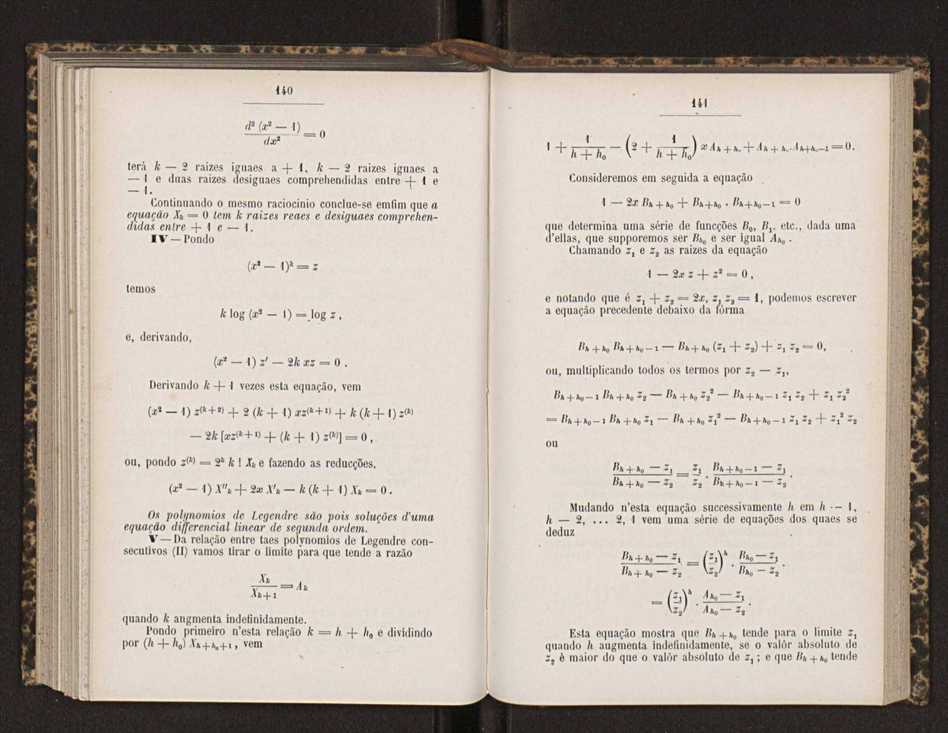 140
d² (x² — 1) / dx² = 0
terá k — 2 raizes iguaes a + 1, k — 2 raizes iguaes a
— 1 e duas raizes desiguaes comprehendidas entre + 1 e
— 1.
Continuando o mesmo raciocinio conclue-se emfim que a
equação Xₖ = 0 tem k raizes reaes e desiguaes comprehen-
didas entre + 1 e — 1.
IV — Pondo
(x² — 1)ᵏ = z
temos
k log (x² — 1) = log z ,
e, derivando,
(x² — 1) z' — 2k xz = 0 .
Derivando k + 1 vezes esta equação, vem
(x² — 1) z⁽ᵏ⁺²⁾ + 2 (k + 1) xz⁽ᵏ⁺¹⁾ + k (k + 1) z⁽ᵏ⁾
— 2k [xz⁽ᵏ⁺¹⁾ + (k + 1) z⁽ᵏ⁾] = 0 ,
ou, pondo z⁽ᵏ⁾ = 2ᵏ k ! Xₖ e fazendo as reducções,
(x² — 1) X''ₖ + 2x X'ₖ — k (k + 1) Xₖ = 0 .
Os polynomios de Legendre são pois soluções d'uma
equação differencial linear de segunda ordem.
V — Da relação entre taes polynomios de Legendre con-
secutivos (II) vamos tirar o limite para que tende a razão
Xₖ / Xₖ₊₁ = Aₖ
quando k augmenta indefinidamente.
Pondo primeiro n'esta relação k = h + h₀ e dividindo
por (h + h₀) X_{h+h₀+1} , vem
141
1 + 1 / (h + h₀) — (2 + 1 / (h + h₀)) x A_{h+h₀} + A_{h+h₀} . A_{h+h₀—1} = 0.
Consideremos em seguida a equação
1 — 2x B_{h+h₀} + B_{h+h₀} . B_{h+h₀—1} = 0
que determina uma série de funcções B₀, B₁, etc., dada uma
d'ellas, que supporemos ser B_{h₀} e ser igual A_{h₀} .
Chamando z₁ e z₂ as raizes da equação
1 — 2x z + z² = 0 ,
e notando que é z₁ + z₂ = 2x, z₁ z₂ = 1, podemos escrever
a equação precedente debaixo da fórma
B_{h+h₀} B_{h+h₀—1} — B_{h+h₀} (z₁ + z₂) + z₁ z₂ = 0,
ou, multiplicando todos os termos por z₂ — z₁,
B_{h+h₀—1} B_{h+h₀} z₂ — B_{h+h₀} z₂² — B_{h+h₀—1} z₁ z₂ + z₁ z₂²
= B_{h+h₀—1} B_{h+h₀} z₁ — B_{h+h₀} z₁² — B_{h+h₀—1} z₁ z₂ + z₁² z₂
ou
(B_{h+h₀} — z₁) / (B_{h+h₀} — z₂) = z₁ / z₂ . (B_{h+h₀—1} — z₁) / (B_{h+h₀—1} — z₂) .
Mudando n'esta equação successivamente h em h — 1,
h — 2, ... 2, 1 vem uma série de equações dos quaes se
deduz
(B_{h+h₀} — z₁) / (B_{h+h₀} — z₂) = (z₁ / z₂)ʰ . (B_{h₀} — z₁) / (B_{h₀} — z₂) .
= (z₁ / z₂)ʰ . (A_{h₀} — z₁) / (A_{h₀} — z₂) .
Esta equação mostra que B_{h+h₀} tende para o limite z₁
quando h augmenta indefinidamente, se o valôr absoluto de
z₂ é maior do que o valôr absoluto de z₁ ; e que B_{h+h₀} tende